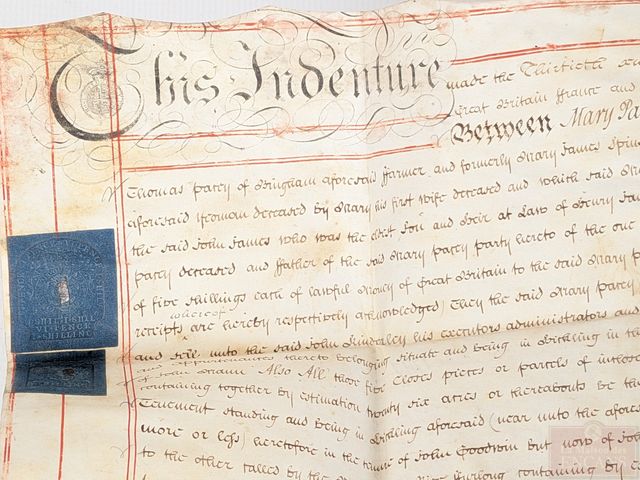 This Indenture made the Thirtieth
Great Britain ffrance and
Between Mary Pa
Thomas Pacey of Bingham aforesaid ffarmer and formerly Mary James Spin
aforesaid Yeoman deceased by Mary his first wife deceased and which said
the said John James who was the eldest Son and Heir at Law of Henry Jam
Pacey deceased and ffather of the said Mary Pacey party hereto of the one
of five shillings each of lawful Money of Great Britain to the said Mary P
whereof
receipts are hereby respectively acknowledged) They the said Mary Pacey
and sell unto the said John his executors administrators and
and appurtenances thereto belonging situate and being in in th
of John Mann Also All those five Closes pieces or parcels of
containing together by estimation twenty six acres or thereabouts be the
Tenement standing and being in aforesaid (near unto the afore
more or less) heretofore in the tenure of John Goodwin but now of Joh
to the other called by the
ffurlong containing by e
SHILL
VI PENCE
SHILLING